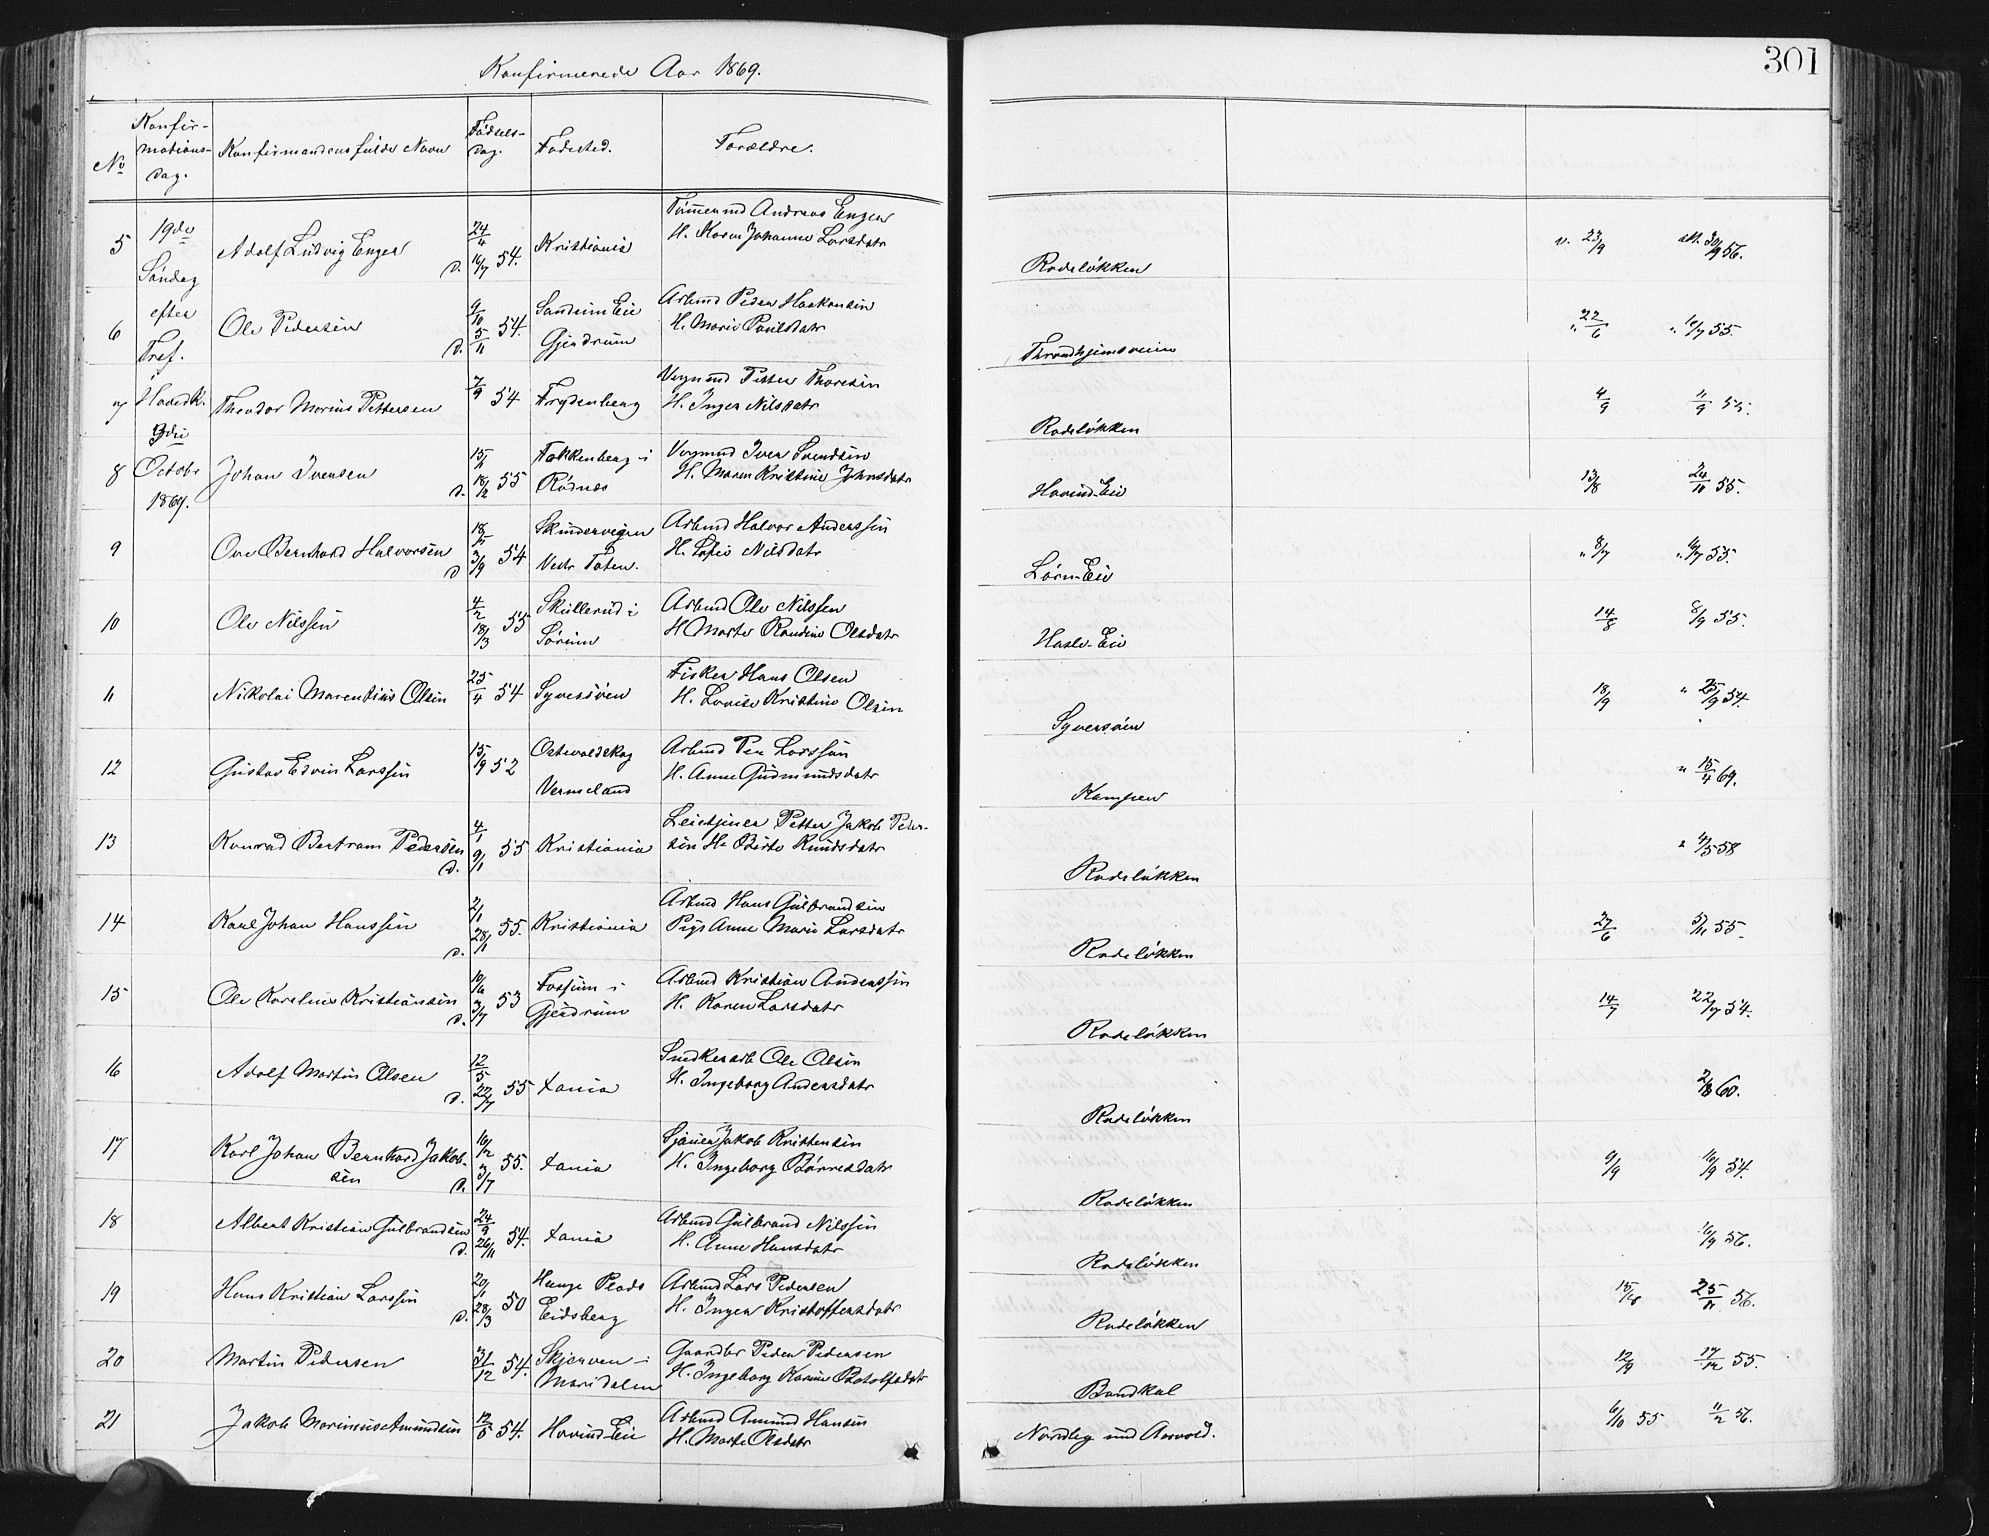 301
Konfirmerede Aar 1869.
No Konfir-mations-dag. Konfirmandens fulde Navn Fødsels-dag. Fødested. Forældre.
19de Søndag efter Tref. Hovedk. 3die Octobr 1869.
5 Adolf Ludvig Enger 24/4 54. d. 16/7 Kristiania
Tømmermd Andreas Enger
H. Karen Johanne Larsdatr
Rodeløkken v. 23/9 att. 30/9 56.
6 Ole Pedersen 9/10 54. d. 5/11 Sandum Eie Gjerdrum
Arbmd Peder Haakensen
H. Marie Paulsdatr
Throndhjemsveien " 22/6 " 16/7 55.
7 Theodor Marius Pettersen 7/9 54 Frydenberg
Vognmd Petter Thoresen
H. Inger Nilsdatr
Rodeløkken 4/9 11/9 55.
8 Johan Iversen 15/1 55 d. 18/2 Fakkenberg i Rødnæs
Vognmd Iver Svendsen
H. Maren Kristine Johnsdatr
Hovind-Eie 13/8 24/11 55.
9 Ove Bernhard Halvorsen 18/7 54 d. 3/9 Skindervegen Vestr Toten.
Arbmd Halvor Anderssen
H. Sofie Nilsdatr
Løren-Eie " 8/7 " 16/7 55.
10 Ole Nilssen 4/2 55 18/3 Skullerud i Sørum
Arbmd Ole Nilssen
H Marte Randine Olsdatr
Hasle-Eie 14/8 8/9 55.
11 Nikolai Marentius Olsen 25/4 54 Syversøen
Fisker Hans Olsen
H. Lovise Kristine Olsen
Syversøen 18/9 " 25/9 54.
12 Gustav Edvin Larssen 15/9 52 Østervaldskog Vermeland
Arbmd Per Larssen
H. Anne Gudmundsdatr
Kampen " 15/4 69.
13 Konrad Bertram Pedersen 4/1 55 d. 9/1 Kristiania
Leietjener Petter Jakob Peder-
sen H. Berte Knudsdatr
Rodeløkken " 4/5 58
14 Karl Johan Hanssen 2/1 55. d. 28/1 Kristiania
Arbmd Hans Gulbrandsen
Pige Anne Marie Larsdatr
Rodeløkken 27/6 3/11 55.
15 Ole Karelius Kristiansen 10/6 53 d. 3/7 Fossum i Gjerdrum
Arbmd Kristian Anderssen
H. Karen Larsdatr
Rodeløkken 14/7 22/7 54.
16 Adolf Martin Olsen 12/5 55 d. 22/7 Xania
Snedkerarb Ole Olsen
H. Ingeborg Andersdatr
Rodeløkken 2/8 60.
17 Karl Johan Bernhard Jakob-
sen 16/2 55. d. 3/7 Xania
Sjauer Jakob Kristensen
H. Ingeborg Børresdatr
Rodeløkken 9/9 16/9 54.
18 Albert Kristian Gulbrandsen 24/9 54. d. 26/11 Xania
Arbmd Gulbrand Nilssen
H. Anne Hansdatr
Rodeløkken 16/9 56.
19 Hans Kristian Larssen 20/1 50 d. 28/3 Hauge Plads Eidsberg
Arbmd Lars Pedersen
H. Inger Kristoffersdatr
Rodeløkken 15/10 25/11 56.
20 Martin Pedersen 31/12 54. Skjerven i Maridalen
Gaardbr Peder Pedersen
H. Ingeborg Karine Botolfsdatr
Bandkal 12/9 17/12 55.
21 Jakob Marinius Amundsen 12/5 54. Hovind-Eie
Arbmd Amund Hansen
H. Marte Olsdatr
Nordleg und Aarvold. 6/10 55 11/2 56.